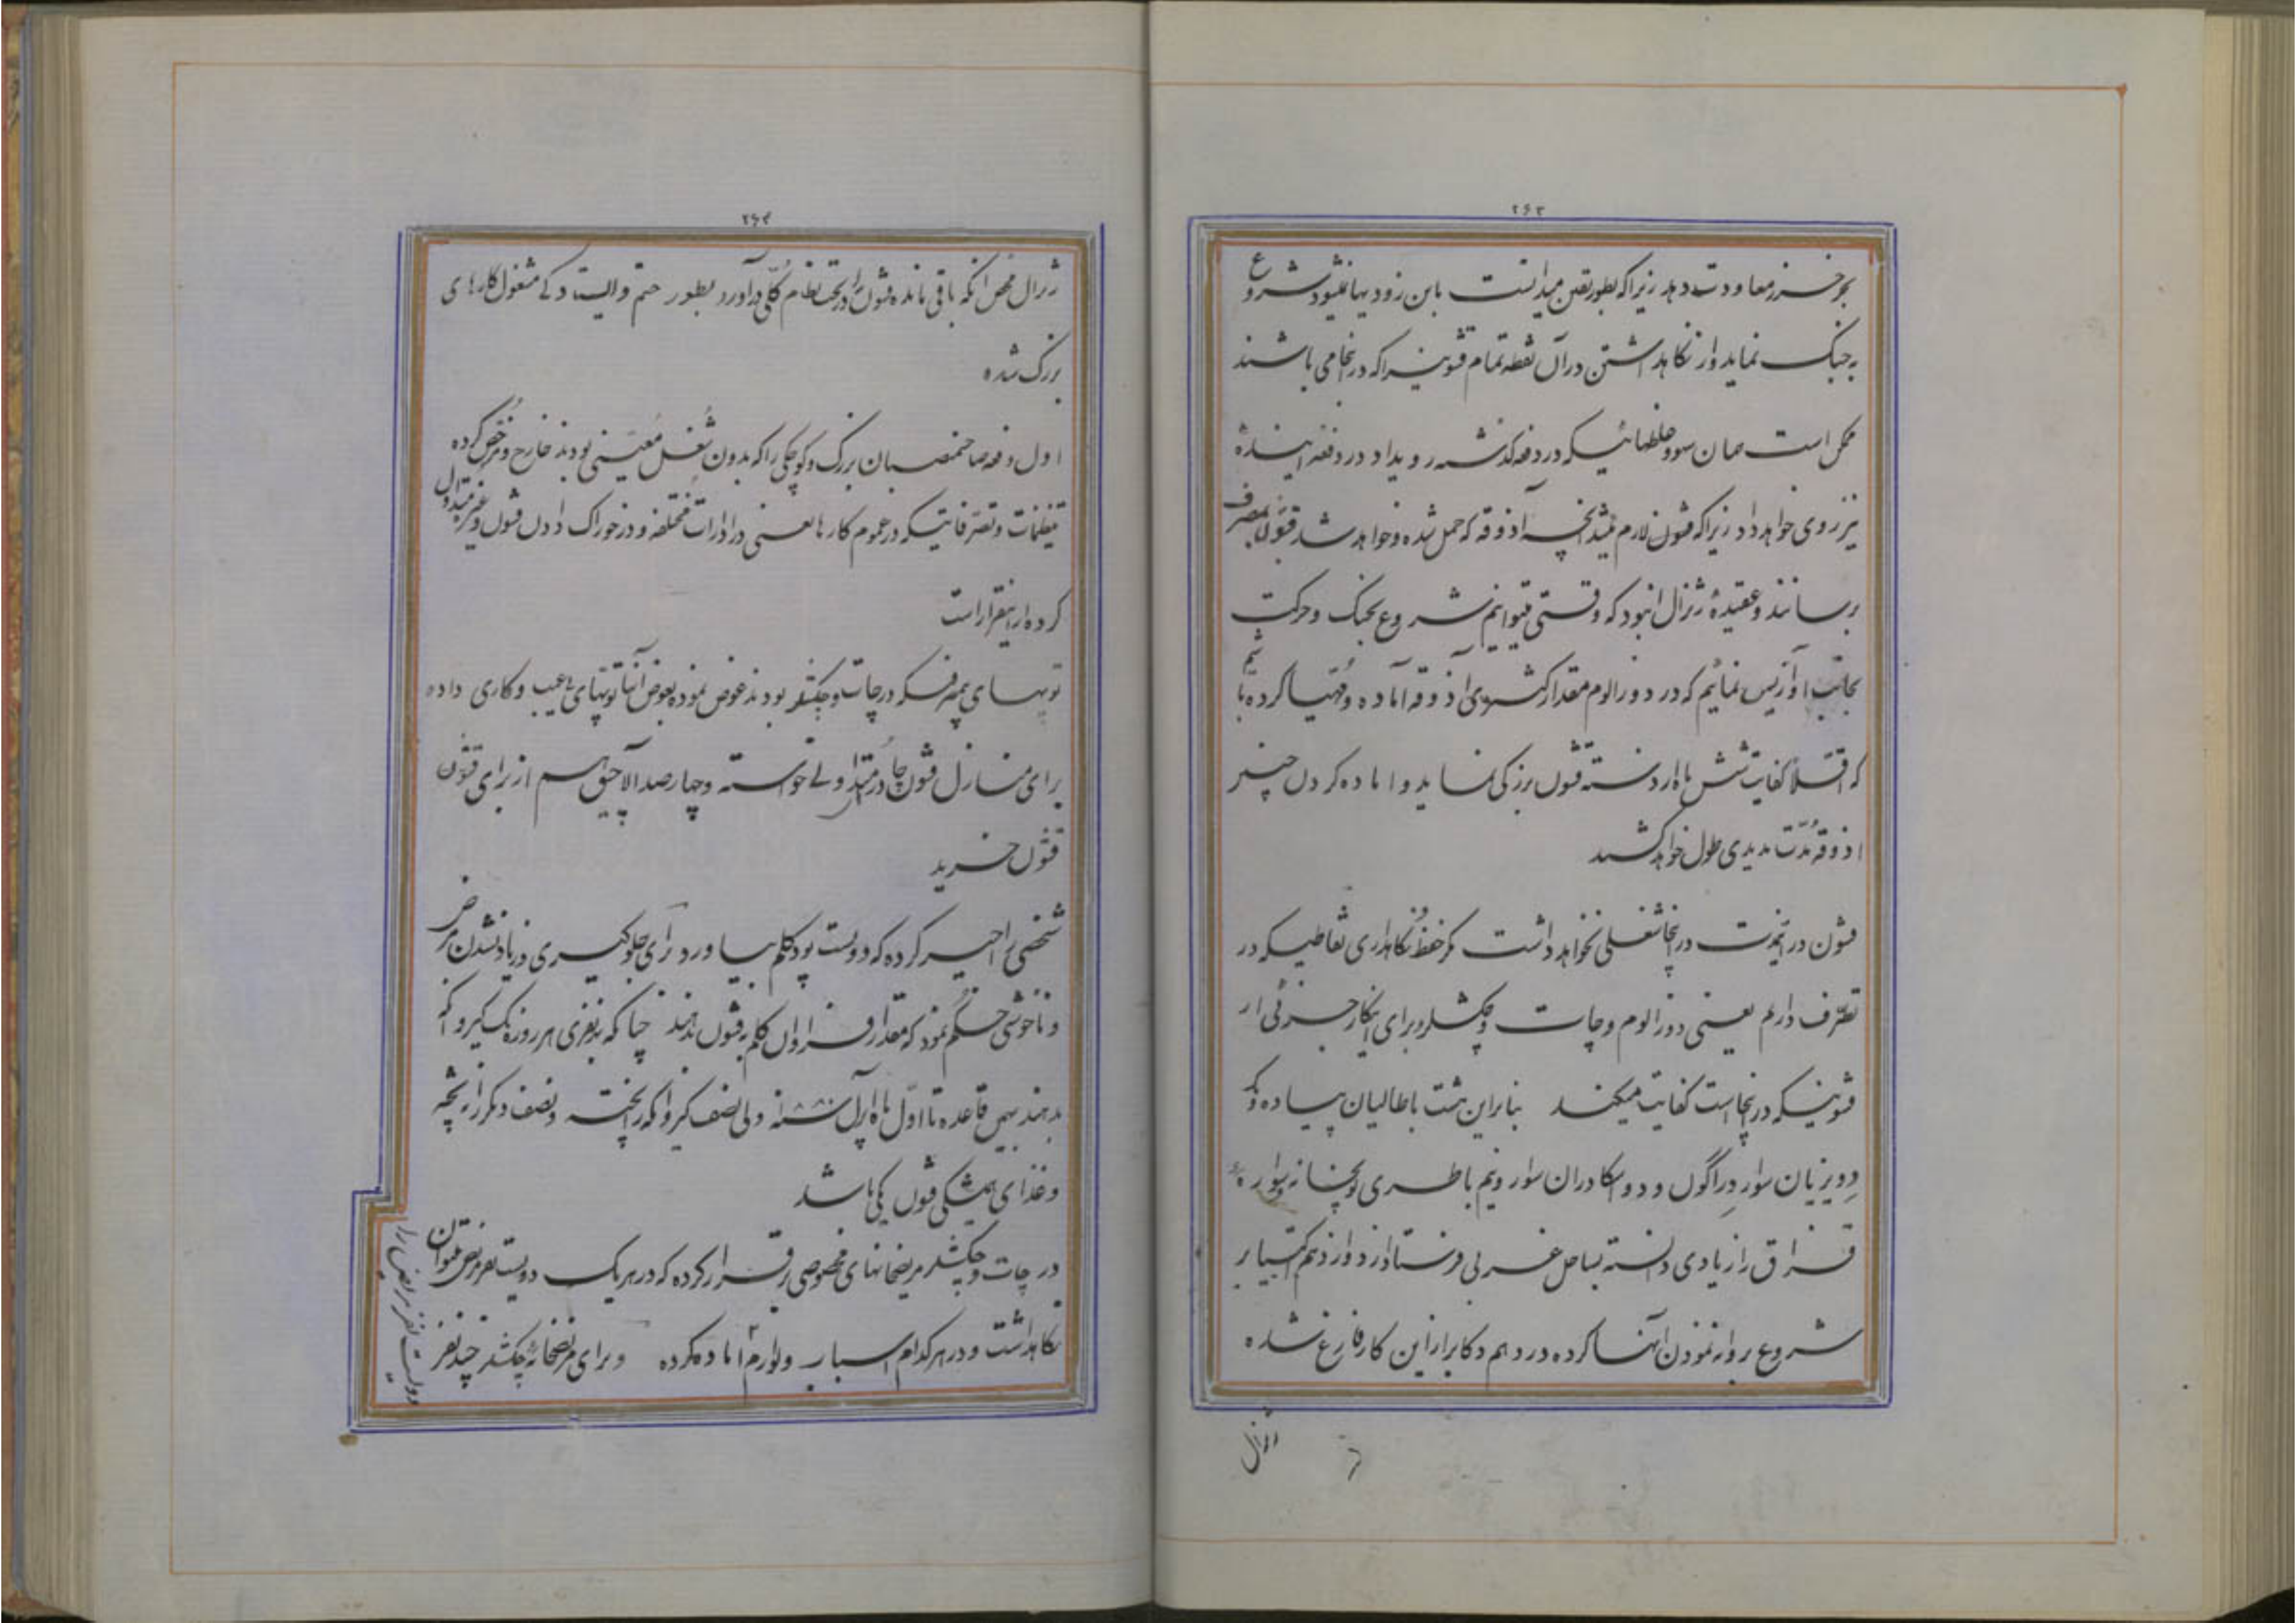 ۲۶۳
بحر خزر معاودت دهد زیرا که بطور یقین میدانست باین زودیها نمیشود شروع
به جنگ نماید و از نگاهداشتن در آن نقطه تمام قشونیرا که در آنجا می باشند
ممکن است همان سوو خلطهائیکه در دفعه گذشته رویداد در دفعه آینده
نیز روی خواهد داد زیرا که قشون لازم آنچه آذوقه که حمل شده و خواهد شد قشون بمصرف
برسانند و عقیدهٔ ژنرال این بود که وقتی میتوانیم شروع بجنگ و حرکت
بجانب اوازیس نمائیم که در دوزالوم مقدار کثیروی آذوقه آماده و مهیا کرده باشیم
که اقلاً کفایت شش ماه اردو دسته قشون بزرگی نماید و آماده کردن چنیین
آذوقه مدت مدیدی طول خواهد کشید
قشون در آنمدت در آنجا شغلی نخواهد داشت مگر حفظ و نگاهداری نقاطیکه در
تصرف داریم یعنی دوزالوم و چات و چکشلر و برای اینکار جزئی از
قشونیکه در آنجا است کفایت میکند بنابراین هشت باطالیان پیاده و
دویزیان سوار دراگون و دو اسکادران سوار و نیم باطری توپخانه و سواره
قزاق را زیادی دانسته بساحل غربی فرستاد از دوازدهم اکتیابر
شروع بروانه نمودن آنها کرده در دهم دکابر از این کار فارغ شده
ژنرال
۲۶۴
ژنرال محض آنکه باقی مانده قشون را در تحت نظام کلی در آورد بطور حتم و ایستادگی مشغول کارهای
بزرگ شده
اول دفعه صاحبمنصبان بزرگ و کوچکی را که بدون شغل معینی بودند خارج و مرخص کرده
تنظیمات و تصرفاتیکه در عموم کارها یعنی در ادارات مختلفه و در خوراک دادن قشون و غیره متداول
کرده از اینقرار است
توپهای نمره فسکه در چات و چکشلر بودند عوض نموده بعوض آنها توپهای بی عیب و کاری داده
برای منازل قشون چادر متداولی خواسته و چهارصد آلاچیق هم از برای قشون
قشون خرید
شخصی را اجیر کرده که دویست پود کلم بیاورد برای جلوگیری و زیاد نشدن مرض
و ناخوشی حکم نمود که مقدار فراوان کلم به قشون بدهند چنانکه بنفری هر روزه یک گیروانکه
بدهند بهمین قاعده تا اول ماه اپرل سنه ۱۸۸۰ ولی نصف گیروانکه را پخته و نصف دیگر را نپخته
و غذای همیشگی قشون یکی باشد
در چات و چکشلر مریضخانهای مخصوصی قرار کرده که در هر یک دویست نفر مریض بتوان
نگاهداشت و در هر کدام اسباب و لوازم آماده کرده و برای مریضخانهٔ چکشلر چند نفر
دویست نفر مریض را